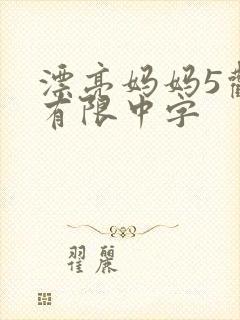 漂亮妈妈5
有限中字
翟丽